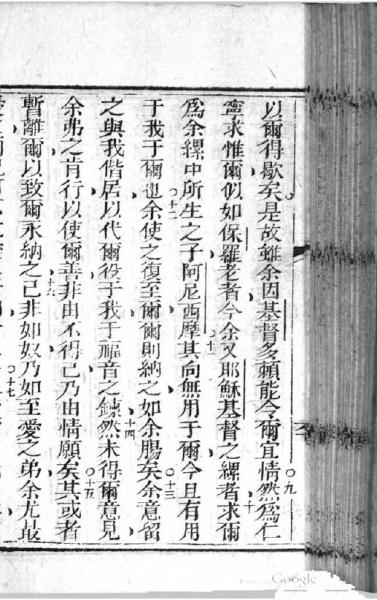 ○九
以爾得歇矣是故雖余因基督多賴能令爾宜情然為仁
十
寧求惟爾似如保羅老者今余又耶穌基督之縲者求爾
十一
為余縲中所生之子阿尼西摩其向無用于爾今且有用
○十二
○十三
于我于爾也余使之復至爾爾則納之如余腸矣余意留
十四
之與我偕居以代爾役于我于福音之鍊然未得爾意見
○十五
余弗之肯行以使爾善非由不得已乃由情願矣其或者
十六
暫離爾以致爾永納之已非如奴乃如至愛之弟余尤最
○十七
Google